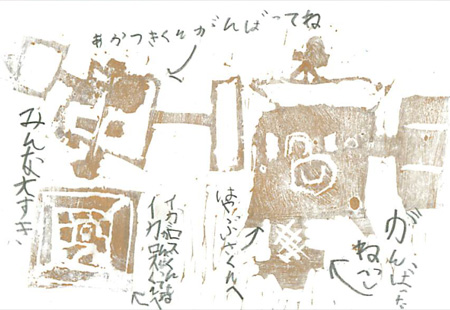 あかつきくんがんばってね
みんな大すき
イカロスくんは
がんばってね
イカロスくんへ
はやぶさくんへ
がんばった
ねっ